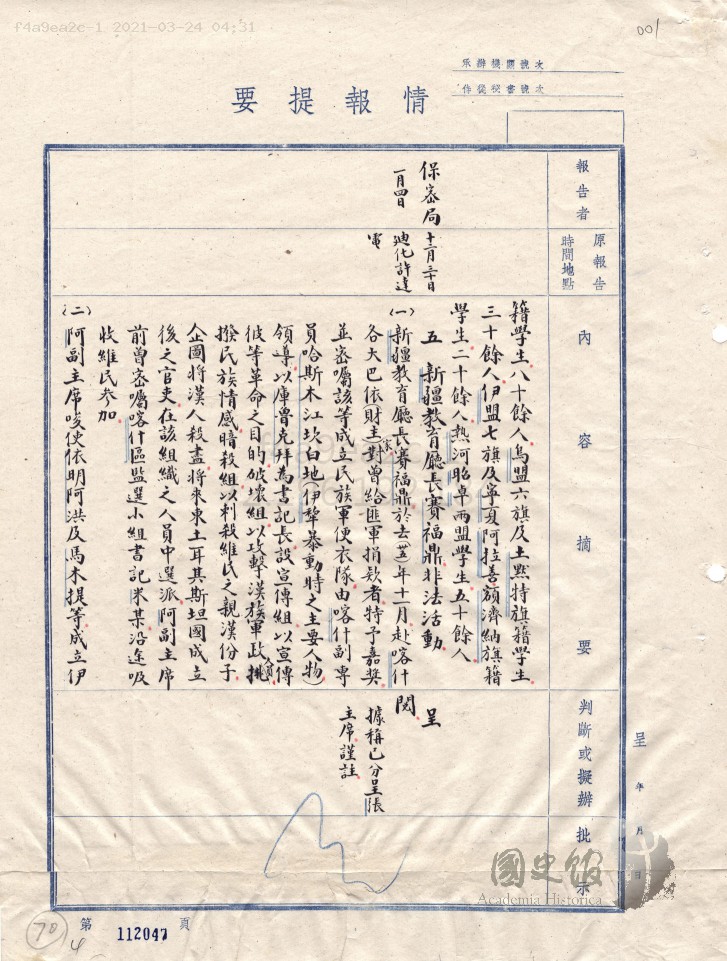 f4a9ea2c-1 2021-03-24 04:31
001
承辦機關號次
侍從秘書號次
情報提要
報告者
原報告
時間地點
內容摘要
判斷或擬辦
批示
呈 年 月 日
保密局
一月四日
十二月三十日
迪化許達
電
籍學生八十餘人烏盟六旗及土默特旗籍學生
三十餘人伊盟七旗及寧夏阿拉善額濟納旗籍
學生二十餘人熱河昭卓兩盟學生五十餘人
五 新疆教育廳長賽福鼎非法活動
(一)新疆教育廳長賽福鼎於去(卅五)年十一月赴喀什
各大巴依財主(家)對曾給匪軍捐款者特予嘉獎
並密囑該等成立民族軍便衣隊由喀什副專
員哈斯木江坎白地(伊犂暴動時之主要人物)
領導以庫魯克拜為書記長設宣傳組以宣傳
彼等革命之目的破壞組以攻擊漢族軍政人員挑
撥民族情感暗殺組以刺殺維民之親漢份子
企圖將漢人殺盡將來東土耳其斯坦國成立
後之官吏在該組織之人員中選派阿副主席
前曾密囑喀什區監選小組書記米某沿途吸
收維民參加
(二)阿副主席唆使依明阿洪及馬木提等成立伊
呈
閱
據稱已分呈張
主席謹註
國史館
Academia Historica
第 112047 頁
70
4